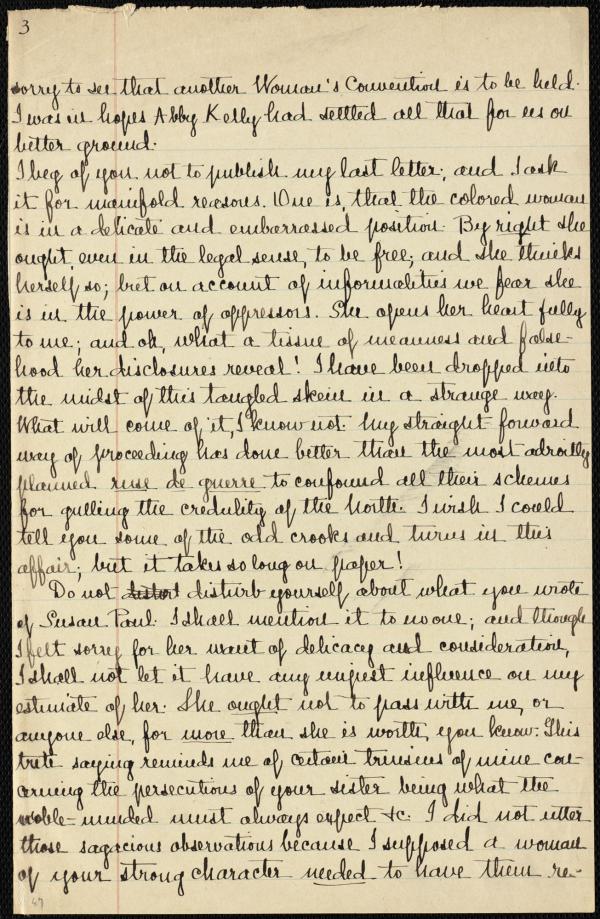 3
sorry to see that another Woman's Convention is to be held.
I was in hopes Abby Kelly had settled all that for us on
better ground.
I beg of you not to publish my last letter; and I ask
it for manifold reasons. One is, that the colored woman
is in a delicate and embarrassed position. By right she
ought, even in the legal sense, to be free; and she thinks
herself so; but on account of informalities we fear she
is in the power of oppressors. She opens her heart fully
to me; and oh, what a tissue of meanness and false-
hood her disclosures reveal! I have been dropped into
the midst of this tangled skein in a strange way.
What will come of it, I know not. My straight-forward
way of proceeding has done better than the most adroitly
planned ruse de guerre to confound all their schemes
for gulling the credulity of the North. I wish I could
tell you some of the odd crooks and turns in this
affair; but it takes so long on paper!
Do not disturb yourself about what you wrote
of Susan Paul. I shall mention it to no one; and though
I felt sorry for her want of delicacy and consideration,
I shall not let it have any unjust influence on my
estimate of her. She ought not to pass with me, or
anyone else, for more than she is worth, you know. This
trite saying reminds me of certain truisms of mine con-
cerning the persecutions of your sister being what the
noble-minded must always expect &c. I did not utter
those sagacious observations because I supposed a woman
of your strong character needed to have them re-
47